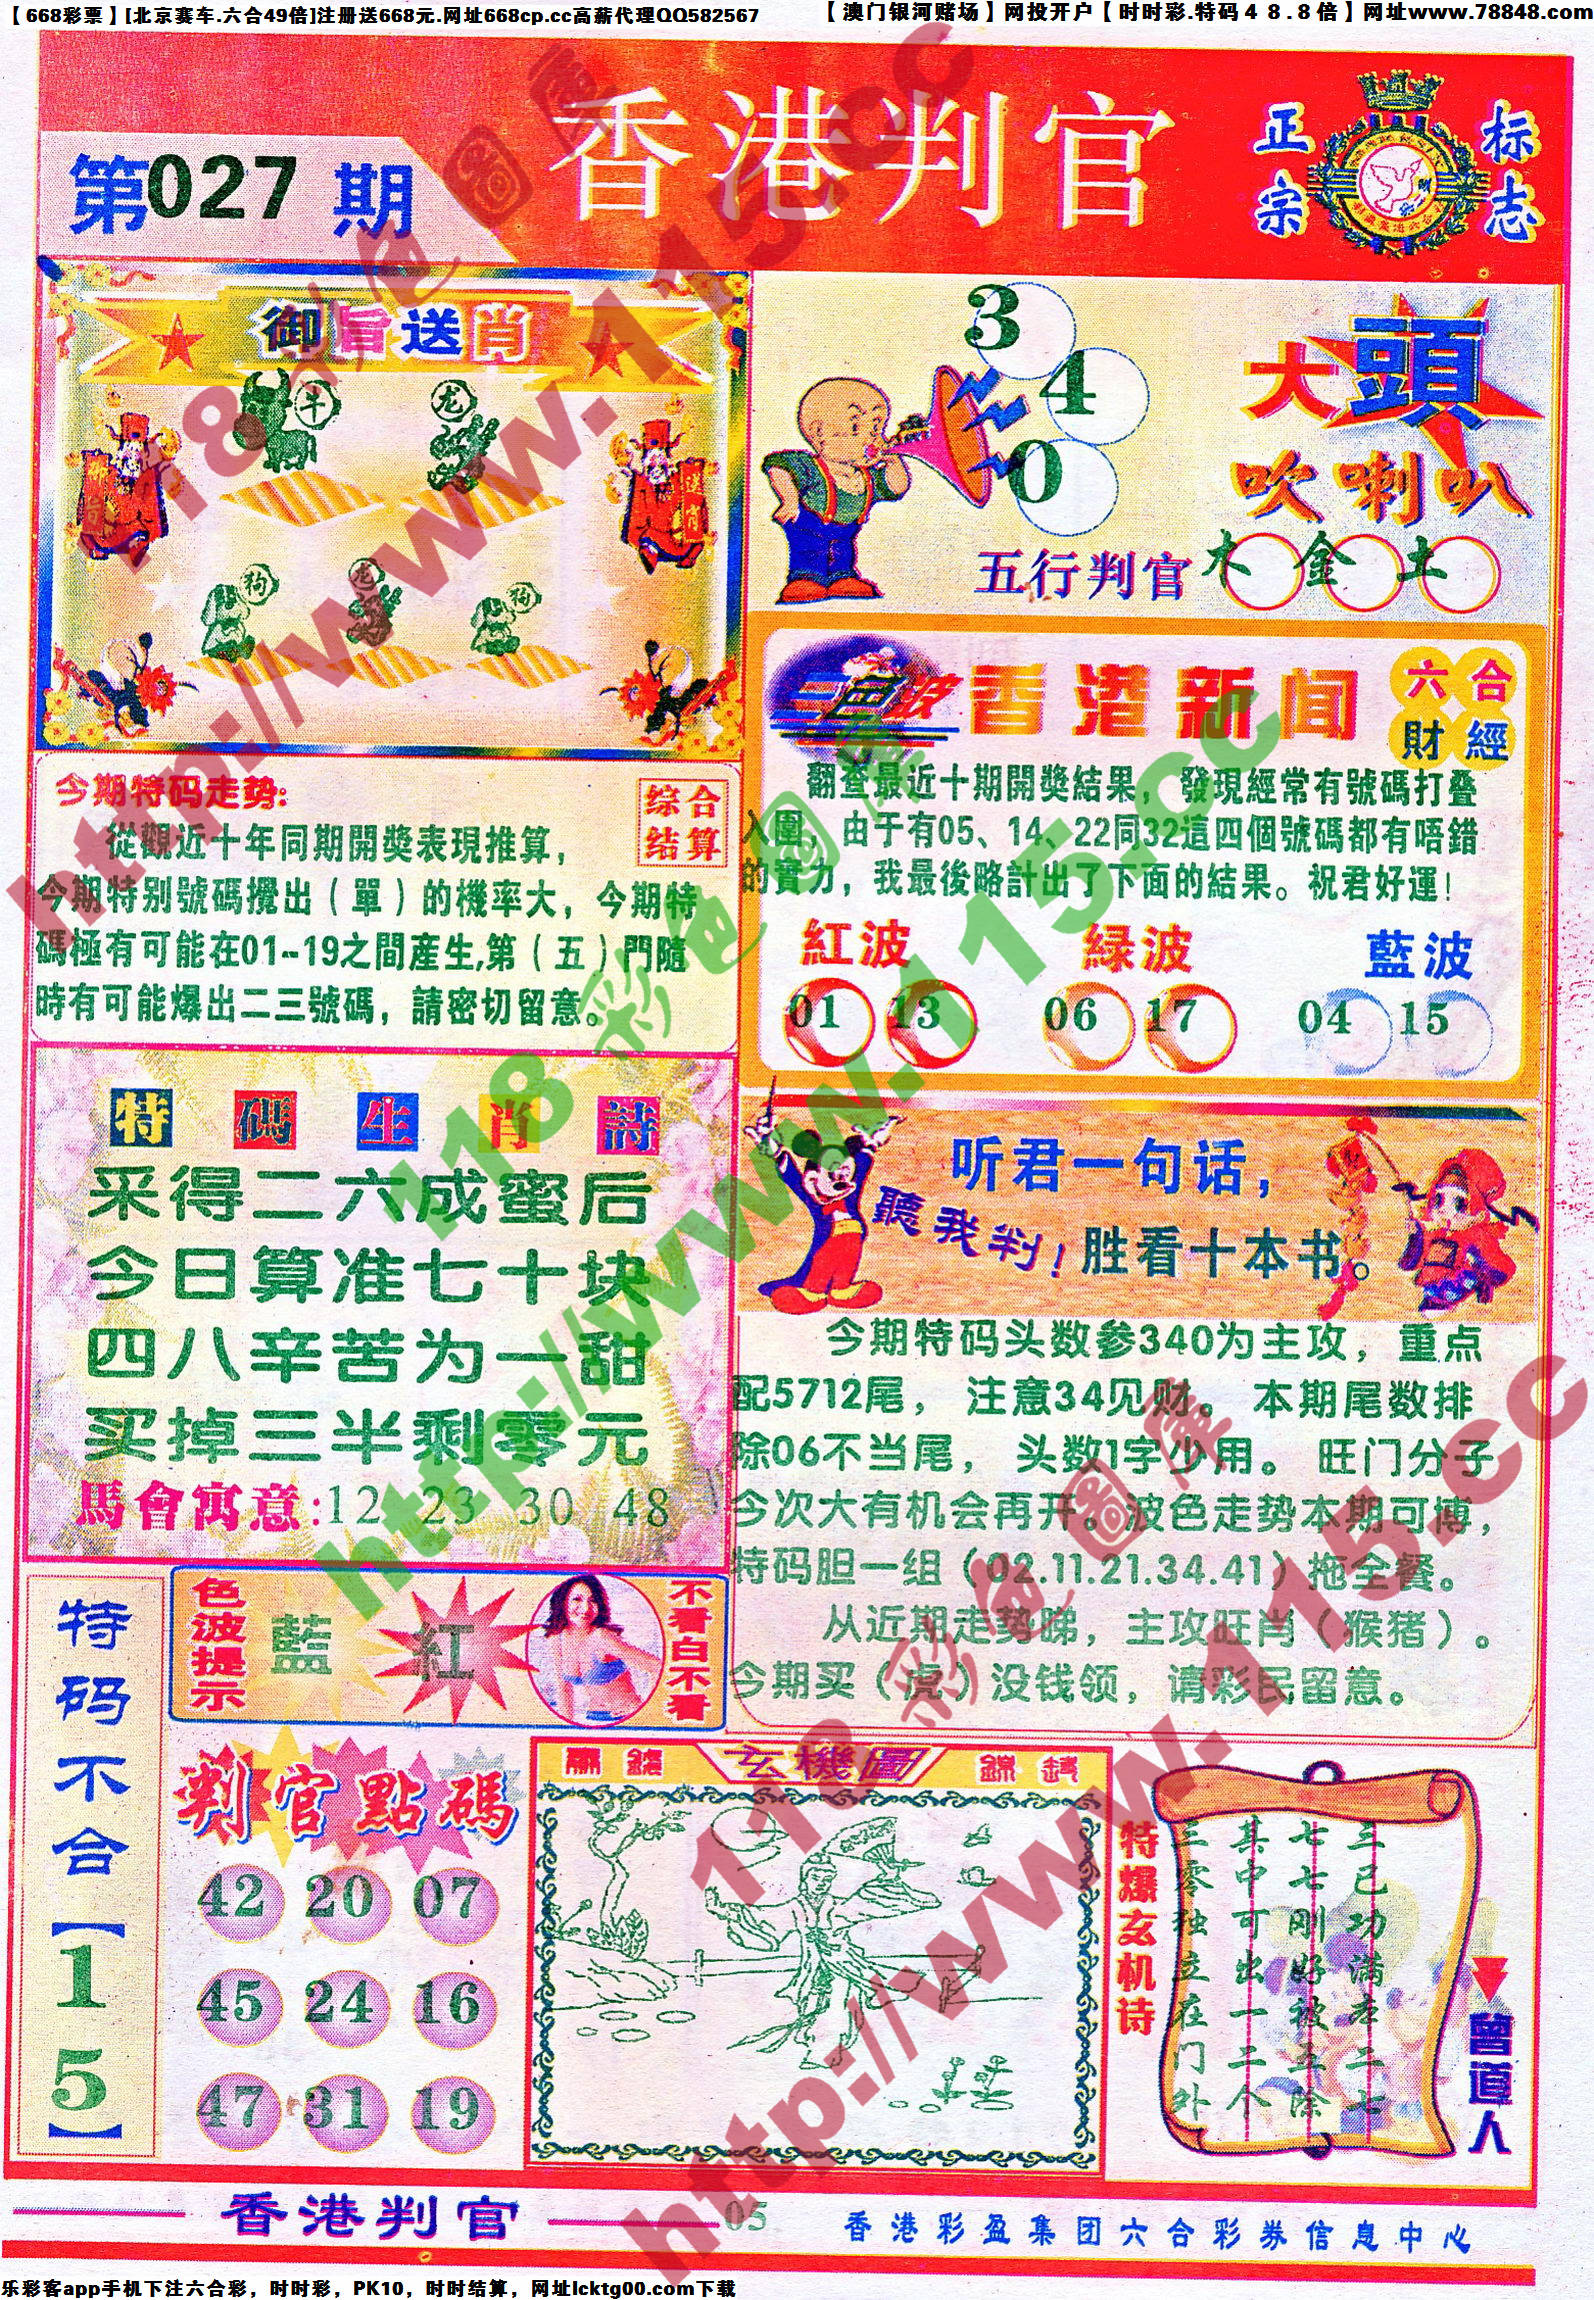 【668彩票】[北京赛车.六合49倍]注册送668元.网址668cp.cc高薪代理QQ582567
【澳门银河赌场】网投开户【时时彩.特码48.8倍】网址www.78848.com
第027期
香港判官
正宗 标志
御旨送肖
牛 龙
御旨 送肖
狗 龙 狗
3
4
0
大頭
吹喇叭
五行判官 木 金 土
今期特码走势:
综合
结算
從觀近十年同期開獎表現推算，
今期特别號碼攪出（單）的機率大，今期特
碼極有可能在01--19之間産生,第（五）門隨
時有可能爆出二三號碼，請密切留意。
三色波 香港新闻 六合
財經
翻查最近十期開獎結果，發現經常有號碼打叠
入圍，由于有05、14、22同32這四個號碼都有唔錯
的實力，我最後略計出了下面的結果。祝君好運！
紅波 緑波 藍波
01 13 06 17 04 15
特碼生肖詩
采得二六成蜜后
今日算准七十块
四八辛苦为一甜
买掉三半剩零元
馬會寓意:12 23 30 48
听君一句话，
聽我判！胜看十本书。
今期特码头数参340为主攻，重点
配5712尾，注意34见财。本期尾数排
除06不当尾，头数1字少用。旺门分子
今次大有机会再开。波色走势本期可博，
特码胆一组（02.11.21.34.41）拖全餐。
从近期走势睇，主攻旺肖（猴猪）。
今期买（虎）没钱领，请彩民留意。
特码不合【15】
色波提示
藍 紅
不看白不看
判官點碼
42 20 07
45 24 16
47 31 19
玄機圖
特爆玄机诗
三已功满在二七
七七刚好被五除
其中可出一二个
三零独立在门外
曾道人
香港判官
05
香港彩盈集团六合彩券信息中心
乐彩客app手机下注六合彩，时时彩，PK10，时时结算，网址lcktg00.com下载
118彩色圖庫
http://www.115.cc
118彩色圖庫
http://www.115.cc
118彩色圖庫
http://www.115.cc